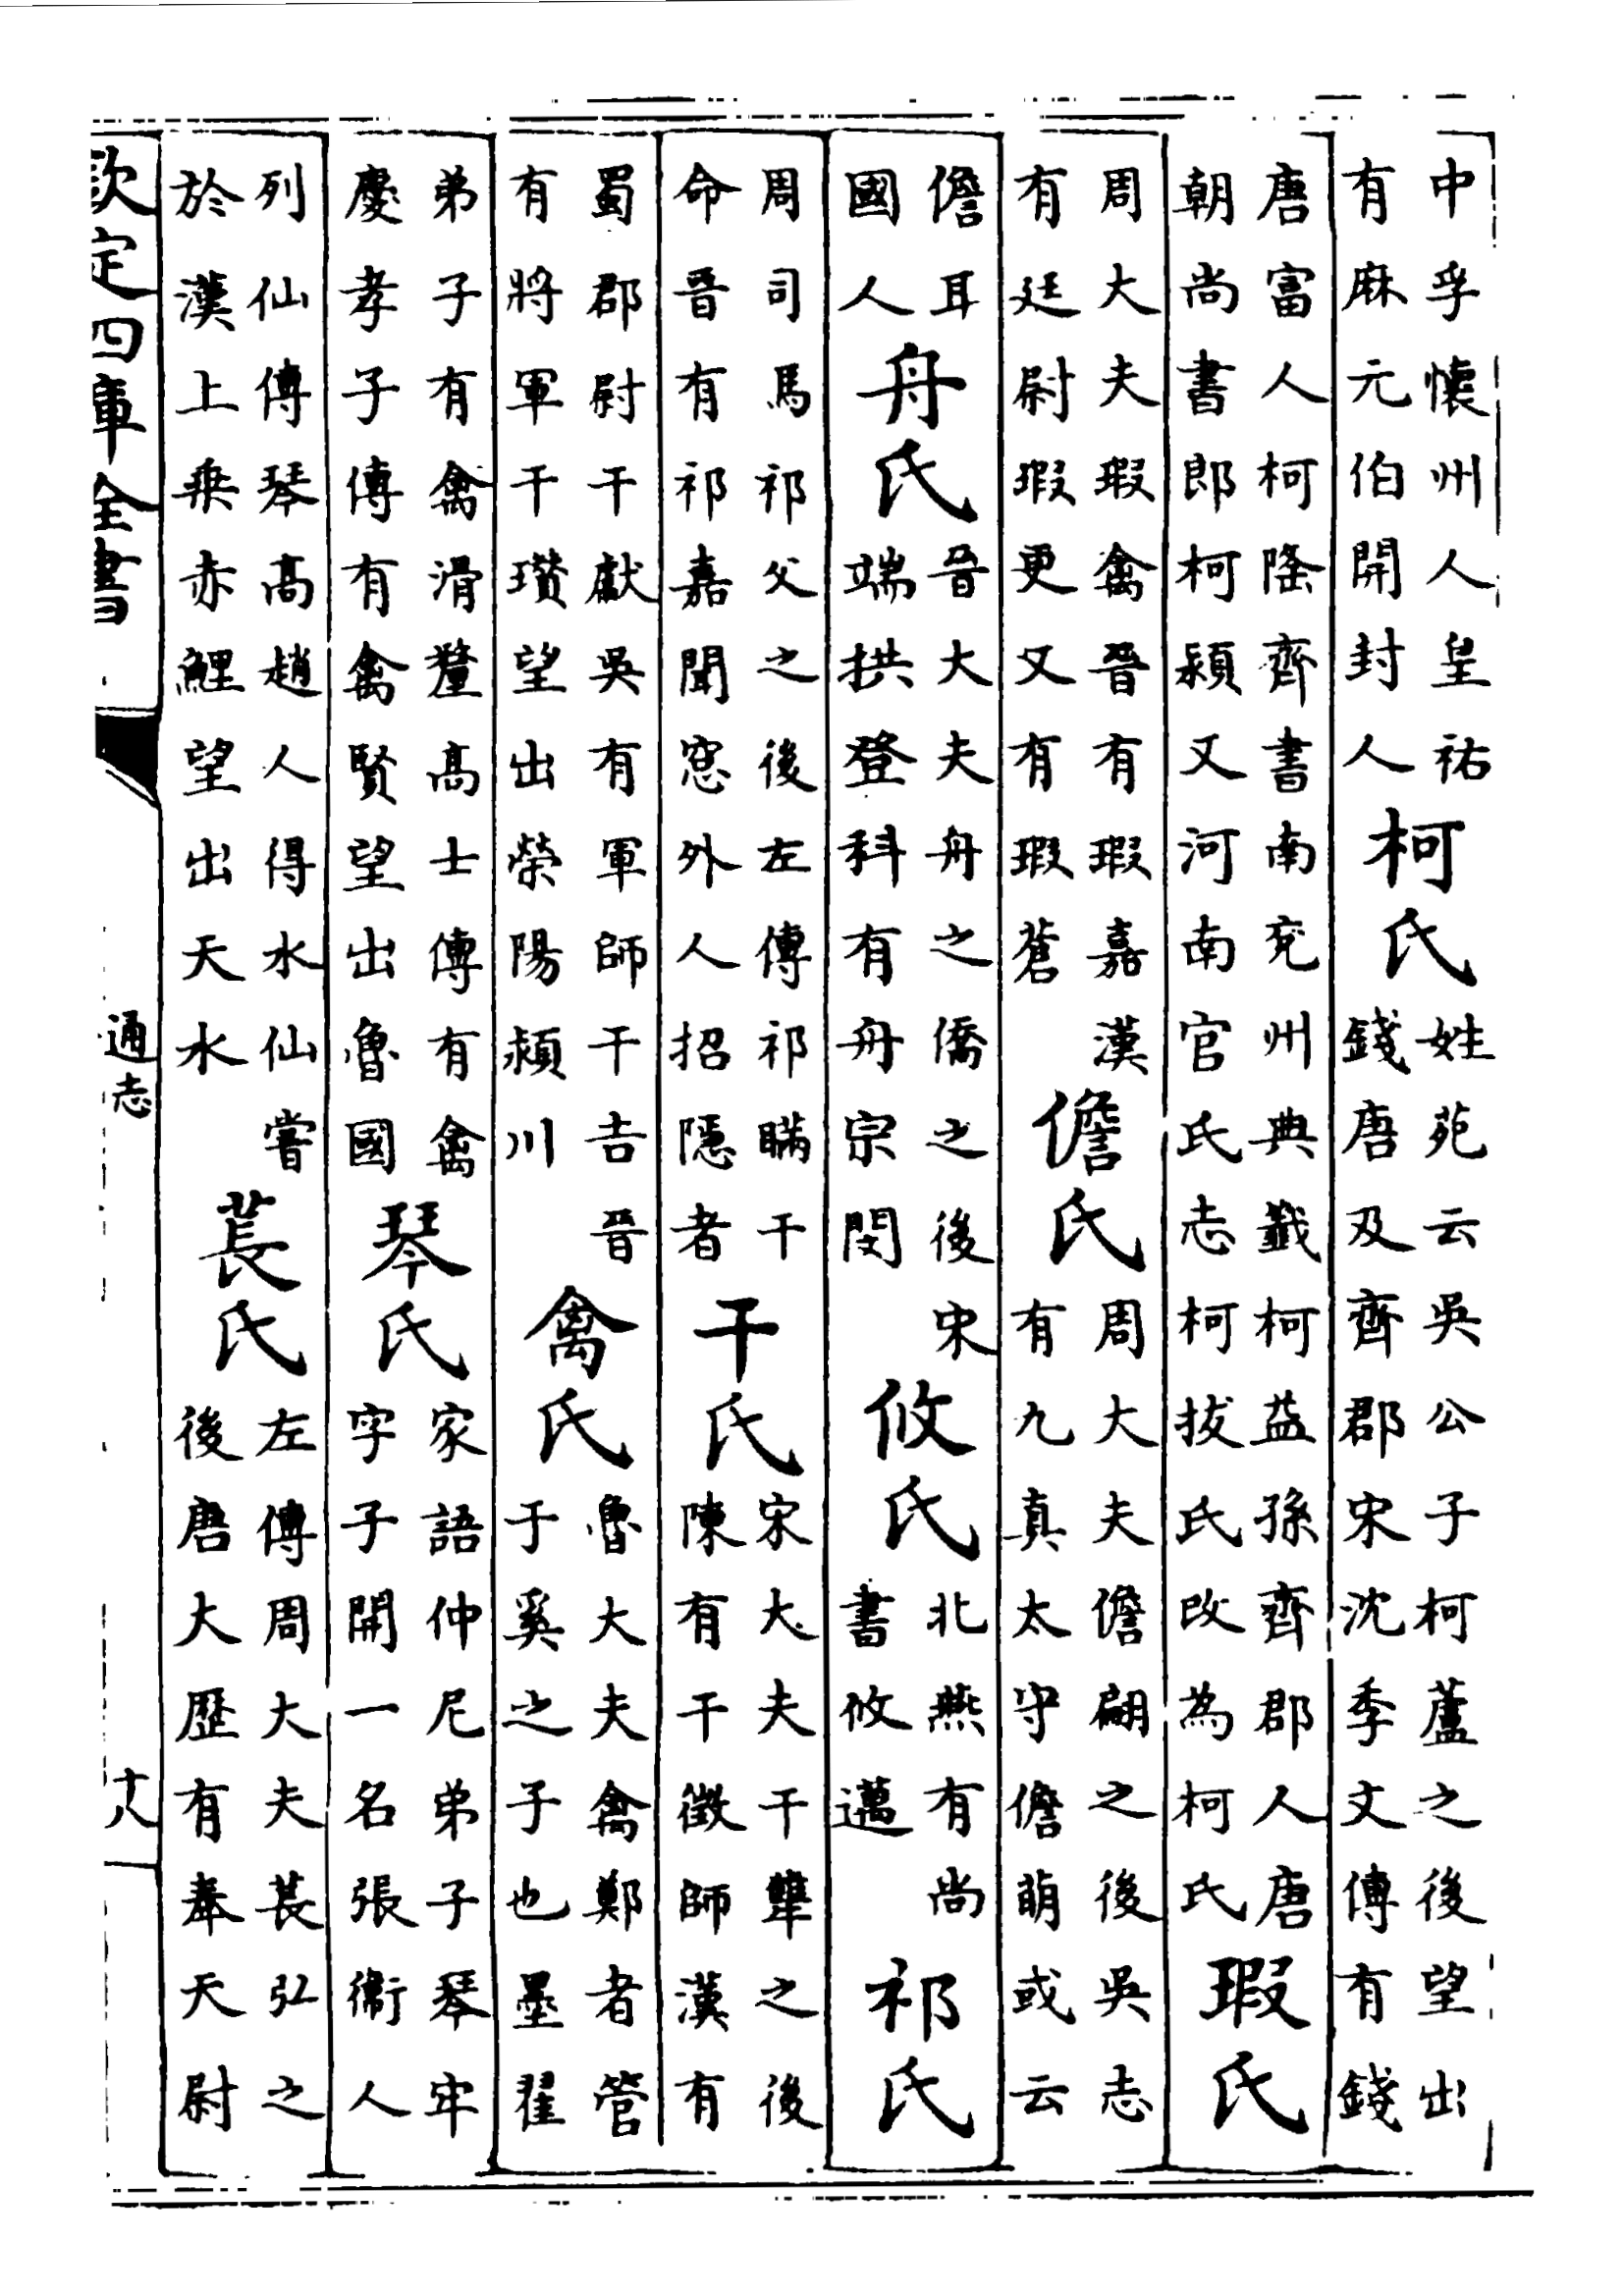 中孚懷州人皇祐
有麻元伯開封人
柯氏
姓苑云吳公子柯蘆之後望出
錢唐及齊郡宋沈季文傳有錢
唐富人柯隆齊書南兖州典籖柯益孫齊郡人唐
朝尚書郎柯潁又河南官氏志柯拔氏改為柯氏
瑕氏
周大夫瑕禽晉有瑕嘉漢
有廷尉瑕更又有瑕蒼
儋氏
周大夫儋翩之後吳志
有九真太守儋萌或云
儋耳
國人
舟氏
晉大夫舟之僑之後宋
端拱登科有舟宗閔
攸氏
北燕有尚
書攸邁
祁氏
周司馬祁父之後左傳祁瞞干
命晉有祁嘉聞窓外人招隱者
干氏
宋大夫干犨之後
陳有干徵師漢有
蜀郡尉干獻吳有軍師干吉晉
有將軍干瓚望出榮陽潁川
禽氏
魯大夫禽鄭者管
于奚之子也墨翟
弟子有禽滑釐高士傳有禽
慶孝子傳有禽賢望出魯國
琴氏
家語仲尼弟子琴牢
字子開一名張衛人
列仙傳琴高趙人得水仙嘗
於漢上乘赤鯉望出天水
萇氏
左傳周大夫萇弘之
後唐大歷有奉天尉
欽定四庫全書
通志
十八